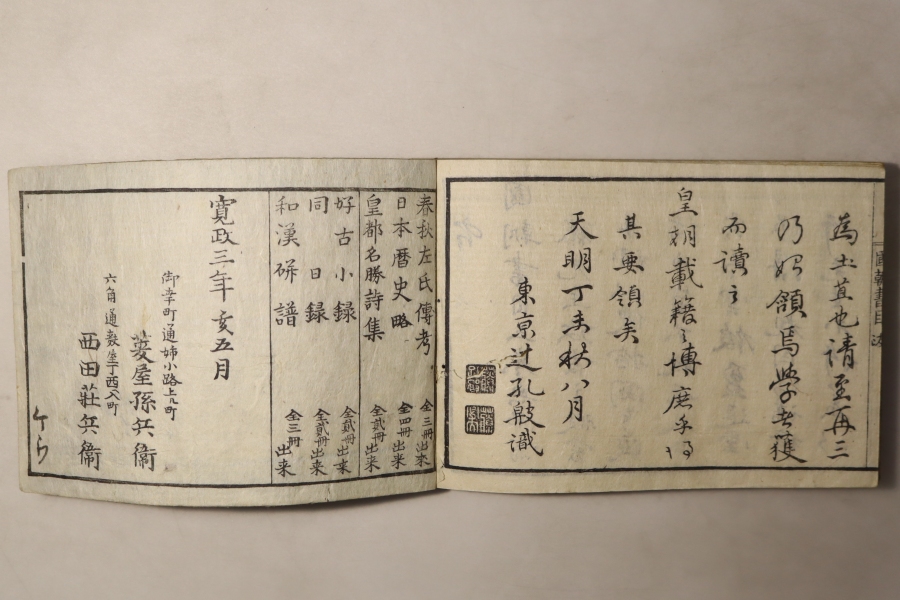 為土苴也請至再三
乃始領焉学者獲
而讀之
皇朝載籍之博庶乎得
其要領矣
天明丁未秋八月
東京辻孔敭識
春秋左氏傳考 全三冊出来
日本曆史略 全四冊出来
皇都名勝詩集 全貳冊出来
好古小録 全貳冊出来
同日録 全貳冊出来
和漢硏譜 全三冊出来
寛政三年亥五月
御幸町通姉小路上ル町
菱屋孫兵衞
六角通
西入町
西田莊兵衞